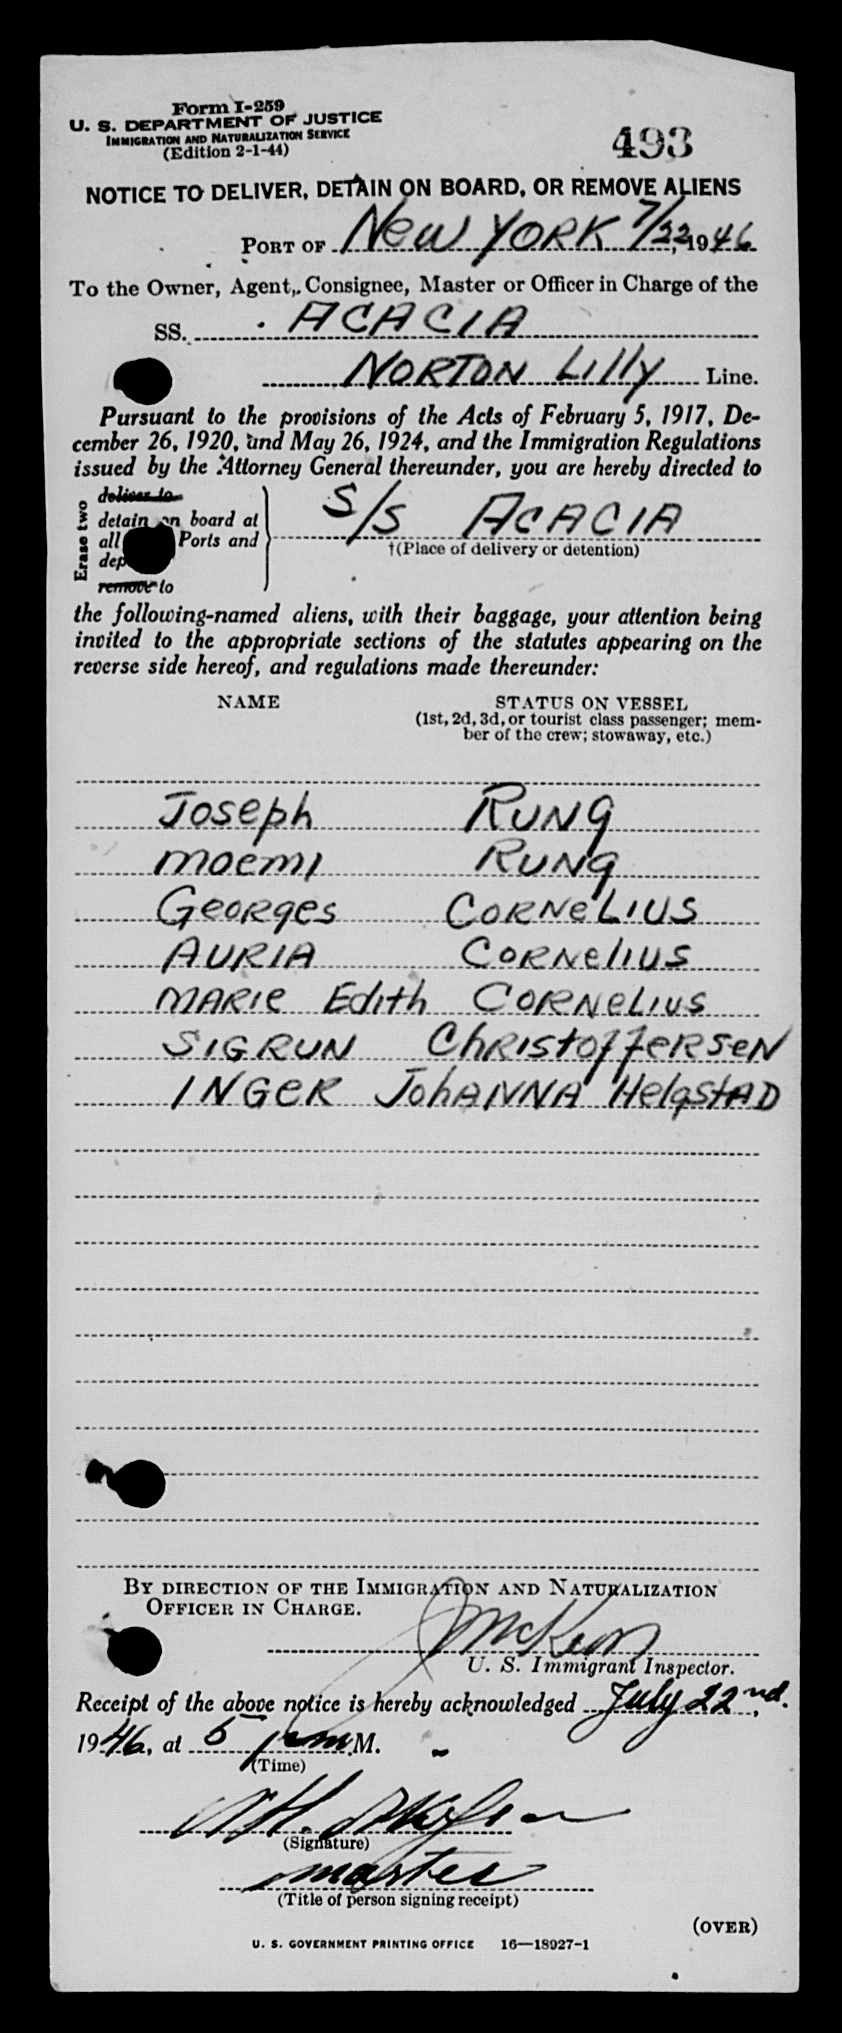 Form I-259
U. S. DEPARTMENT OF JUSTICE
IMMIGRATION AND NATURALIZATION SERVICE
(Edition 2-1-44)
493
NOTICE TO DELIVER, DETAIN ON BOARD, OR REMOVE ALIENS
PORT OF NEW YORK 7/22, 1946
To the Owner, Agent, Consignee, Master or Officer in Charge of the
SS. ACACIA
NORTON Lilly Line.
Pursuant to the provisions of the Acts of February 5, 1917, De-
cember 26, 1920, and May 26, 1924, and the Immigration Regulations
issued by the Attorney General thereunder, you are hereby directed to
Erase two
deliver to
detain on board at
all Ports and
dep
remove to
S/S ACACIA
†(Place of delivery or detention)
the following-named aliens, with their baggage, your attention being
invited to the appropriate sections of the statutes appearing on the
reverse side hereof, and regulations made thereunder:
NAME STATUS ON VESSEL
(1st, 2d, 3d, or tourist class passenger; mem-
ber of the crew; stowaway, etc.)
Joseph RUNg
MOEMI RUNg
GeORges CORNeLIUS
AURIA CORNelIUS
MARIe Edith CORNeLIUS
SIGRUN ChRIStoffeRSeN
INGeR JohANNA HelgstAD
BY DIRECTION OF THE IMMIGRATION AND NATURALIZATION
OFFICER IN CHARGE.
U. S. Immigrant Inspector.
Receipt of the above notice is hereby acknowledged July 22nd,
1946, at 5 pm M.
(Time)
(Signature)
master
(Title of person signing receipt)
(OVER)
U. S. GOVERNMENT PRINTING OFFICE 16—18927-1